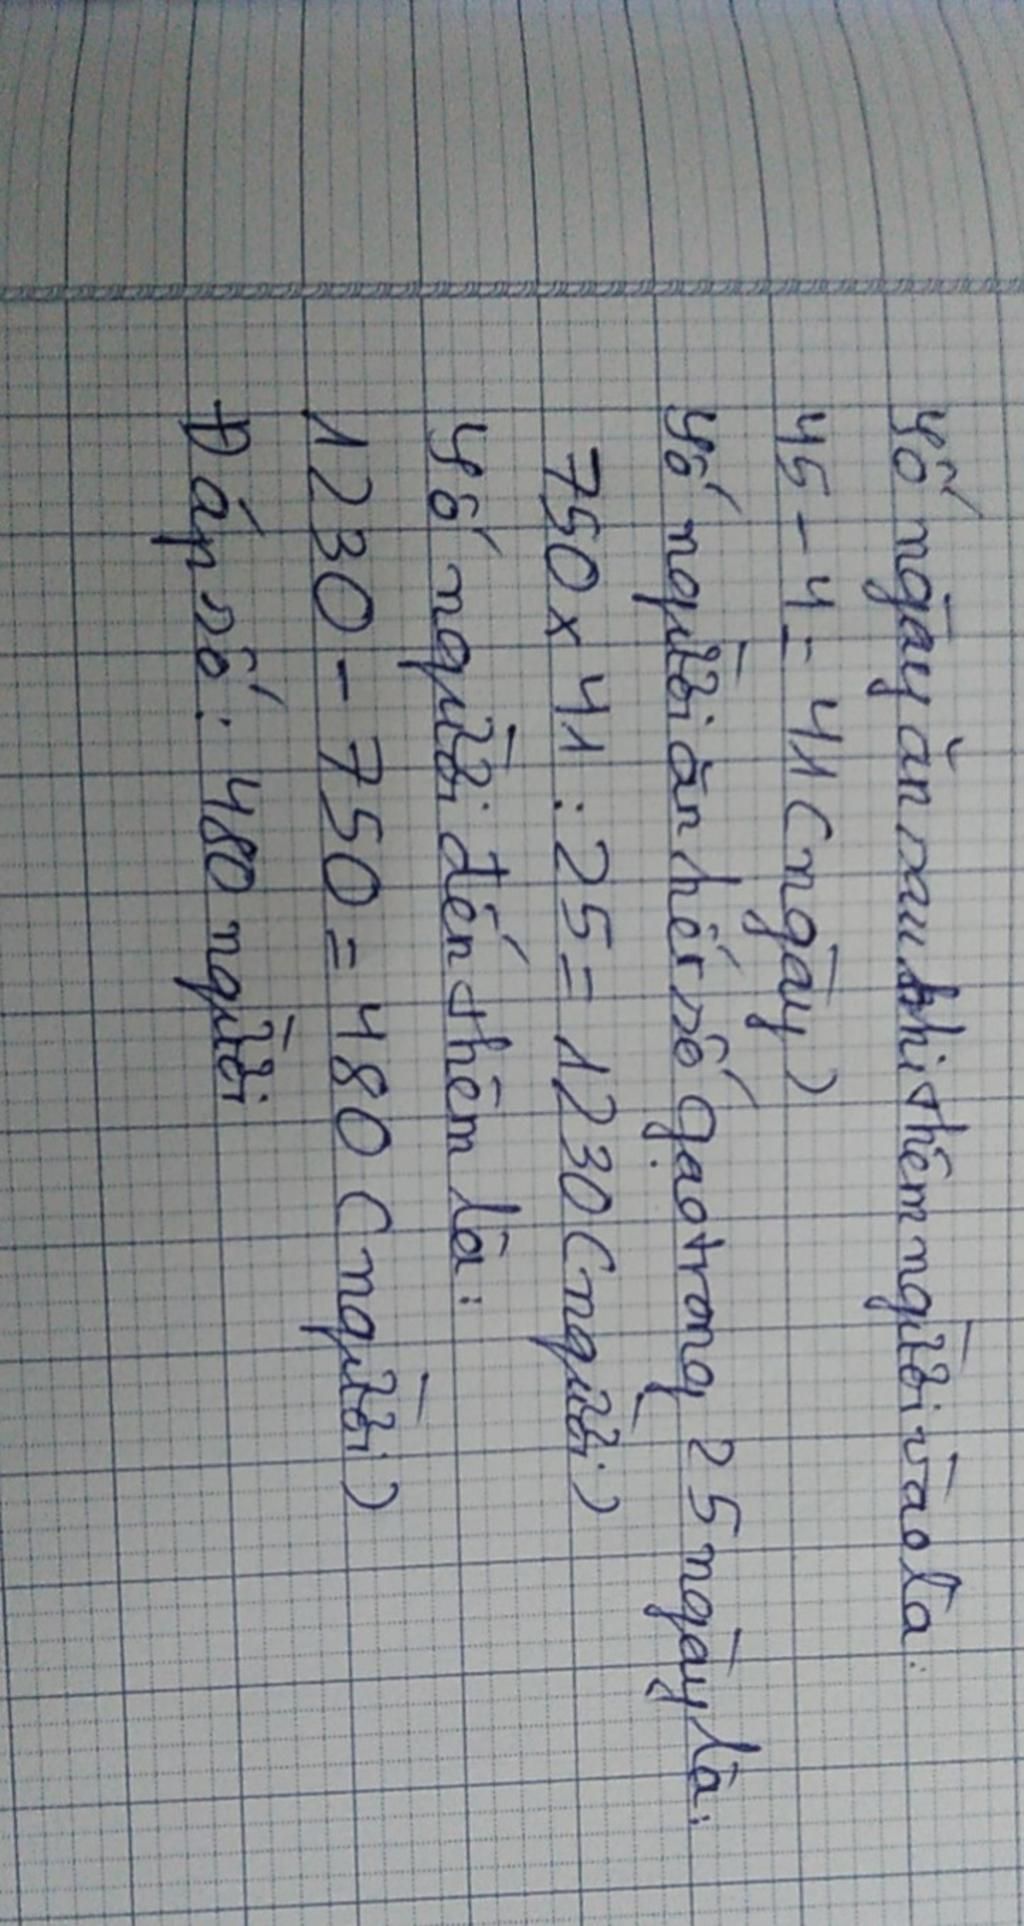 Số ngày ăn sau khi thêm người vào là:
45 - 4 = 41 (ngày)
Số người ăn hết số gạo trong 25 ngày là:
750 x 41 : 25 = 1230 (người)
Số người đến thêm là:
1230 - 750 = 480 (người)
Đáp số: 480 người